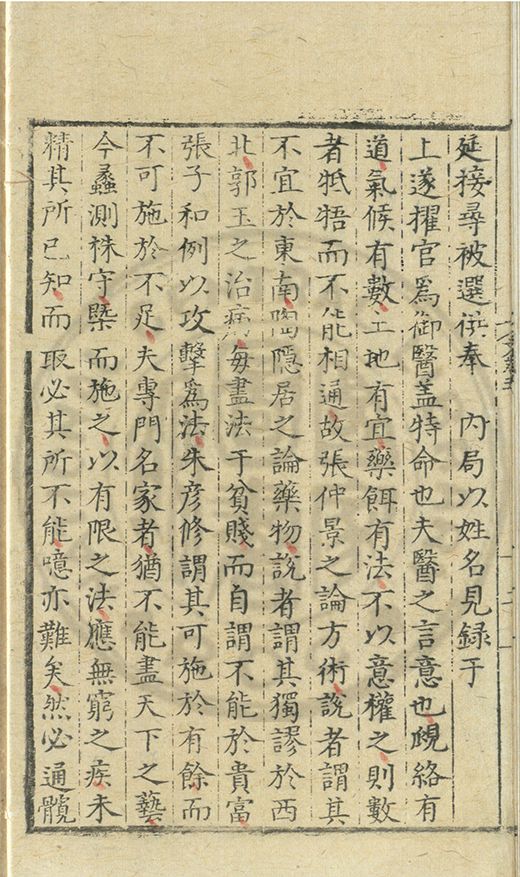 延接尋被選供奉　內局以姓名見録于
上遂擢官爲御醫蓋特命也夫醫之言意也覗絡有
道氣候有數土地有宜藥餌有法不以意權之則數
者牴牾而不能相通故張仲景之論方術說者謂其
不宜於東南陶隱居之論藥物說者謂其獨謬於西
北郭玉之治病每盡法于貧賤而自謂不能於貴富
張子和例以攻擊爲法朱彦修謂其可施於有餘而
不可施於不足夫專門名家者猶不能盡天下之藝
今蠡測株守槩而施之以有限之法應無窮之疾未
精其所已知而取必其所不能噫亦難矣然必通髖